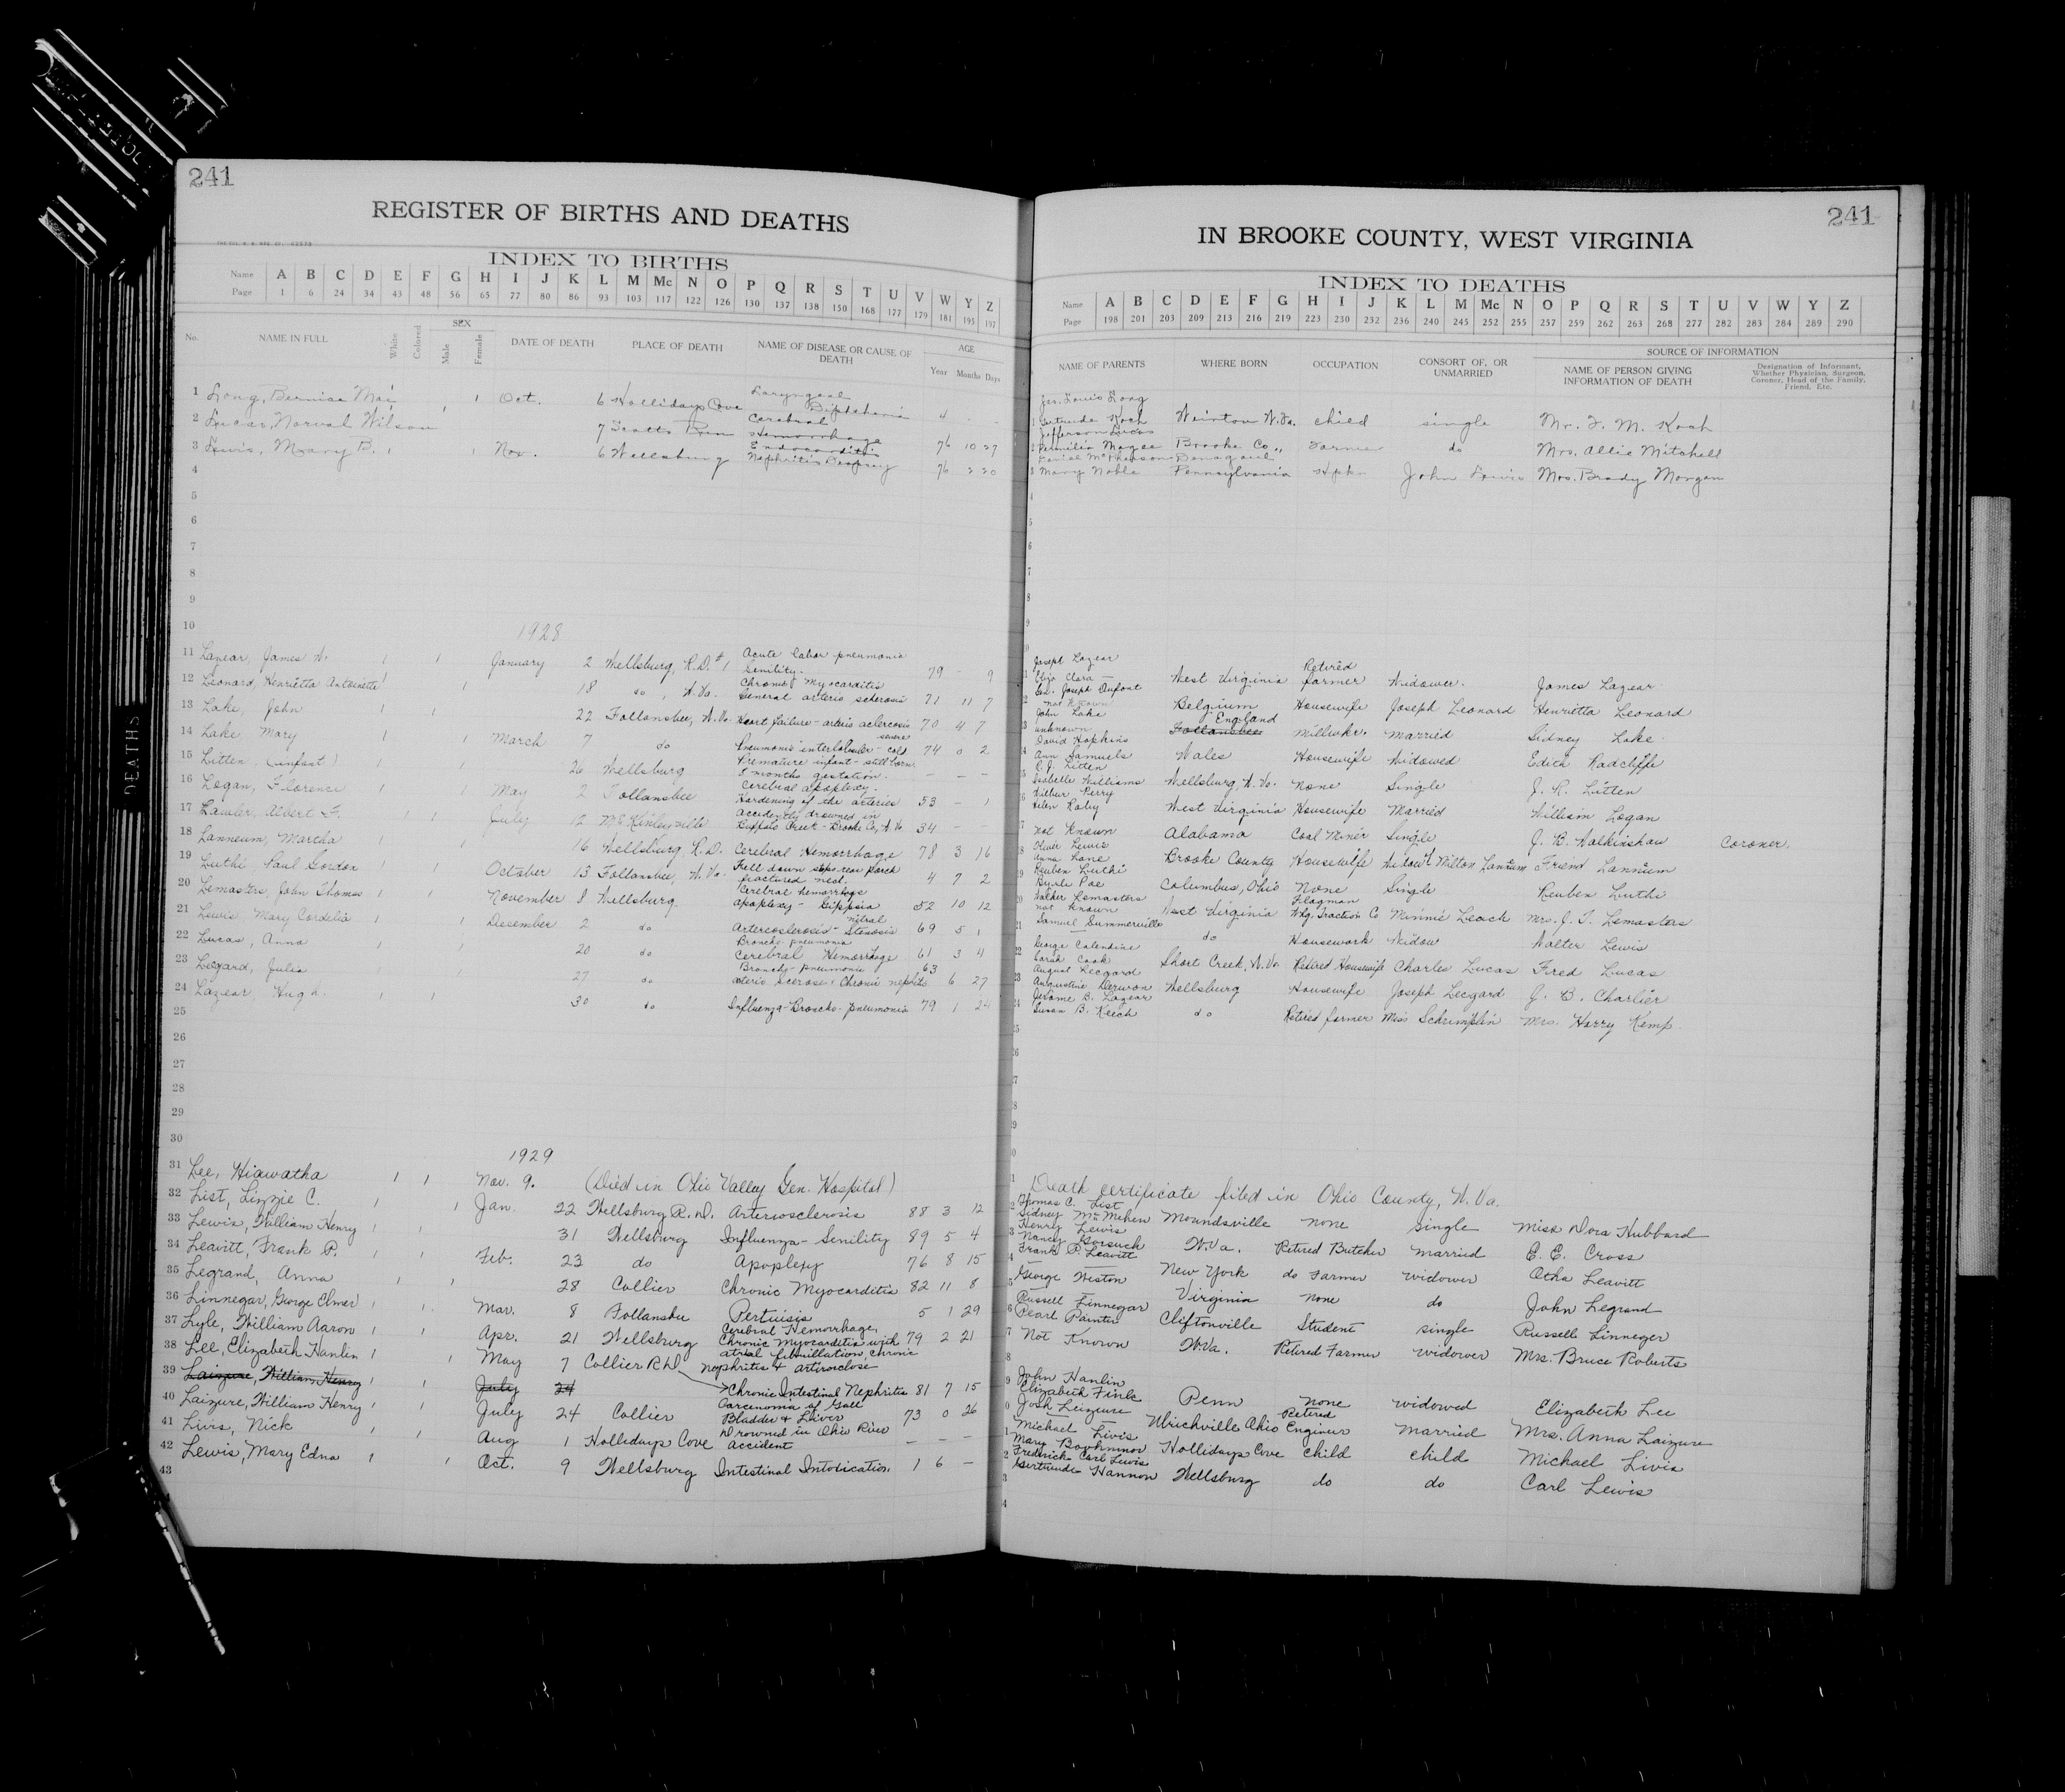 241
REGISTER OF BIRTHS AND DEATHS
INDEX TO BIRTHS
Name A B C D E F G H I J K L M Mc N O P Q R S T U V W Y Z
Page 1 6 24 34 43 48 56 65 77 80 86 93 103 117 122 126 130 137 138 150 168 177 179 181 195 197
No. NAME IN FULL White Colored SEX Male Female DATE OF DEATH PLACE OF DEATH NAME OF DISEASE OR CAUSE OF DEATH AGE Year Months Days
1 Long, Bernice Mae Oct. 6 Hollidays Cove Laryngeal Diphtheria 4
2 Lucas, Norval Wilson 7 Scotts Run Cerebral Hemorrhage 76 10 27
3 Lewis, Mary B. Nov. 6 Wellsburg Endocarditis Nephritis Dropsey 76 2 20
4
5
6
7
8
9
10 1928
11 Lazear, James W. January 2 Wellsburg, R.D. #1 Acute lobar pneumonia Senility. 79 - 9
12 Leonard, Henrietta Antoinette 18 do, W.Va. Chronic Myocarditis General arterio sclerosis 71 11 7
13 Lake, John 22 Follansbee, W.Va. Heart failure - arterio sclerosis 70 4 7
14 Lake, Mary March 7 do Pneumonia interlobular - severe cold 74 0 2
15 Litten, (infant) 26 Wellsburg Premature infant - still born 8 months gestation. - - -
16 Logan, Florence May 2 Follansbee Cerebral apoplexy. Hardening of the arteries 53 - 1
17 Lawler, Albert F. July 12 McKinleyville Accidently drowned in Buffalo Creek - Brooke Co, W.Va. 34 - -
18 Lanneum, Martha 16 Wellsburg, R.D. Cerebral Hemorrhage 78 3 16
19 Luthi Paul Gordon October 13 Follansbee, W.Va. Fell down steps rear porch fractured neck. 4 7 2
20 Lemasters, John Thomas November 8 Wellsburg. Cerebral hemorrhage apoplexy - 52 10 12
21 Lewis, Mary Cordelia December 2 do Arterosclerosis - mitral Stenosis 69 5 1
22 Lucas, Anna 20 do Broncho-pneumonia Cerebral Hemorrhage 61 3 4
23 Legard, Julia 27 do Broncho-pneumonia arterio sclerose, Chronic nephritis 63 6 27
24 Lazear, Hugh. 30 do Influenza - Broncho-pneumonia 79 1 24
25
26
27
28
29
30 1929
31 Lee, Hiawatha Nov. 9. (Died in Ohio Valley Gen. Hospital)
32 List, Lizzie C. Jan. 22 Wellsburg R.D. Arteriosclerosis 88 3 12
33 Lewis, William Henry 31 Wellsburg Influenza - Senility 89 5 4
34 Leavitt, Frank P. Feb. 23 do Apoplexy 76 8 15
35 Legrand, Anna 28 Collier Chronic Myocarditis 82 11 8
36 Linnegar, George Elmer Mar. 8 Follansbee Pertuisis 5 1 29
37 Lyle, William Aaron Apr. 21 Wellsburg Cerebral Hemorrhage, Chronic Myocarditis with 79 2 21
38 Lee, Elizabeth Hanlin May 7 Collier Rd atrial fibrillation, chronic nephritis &
39 Laizure, William Henry July 24 Chronic Intestinal Nephritis 81 7 15
40 Laizure, William Henry July 24 Collier Carcenoma of Gall Bladder & Liver 73 0 26
41 Livis, Nick Aug 1 Hollidays Cove Drowned in Ohio River accident - - -
42 Lewis, Mary Edna Oct. 9 Wellsburg Intestinal Intoxication 1 6 -
43
DEATHS
241
IN BROOKE COUNTY, WEST VIRGINIA
INDEX TO DEATHS
Name A B C D E F G H I J K L M Mc N O P Q R S T U V W Y Z
Page 198 201 203 209 213 216 219 223 230 232 236 240 245 252 255 257 259 262 263 268 277 282 283 284 289 290
NAME OF PARENTS WHERE BORN OCCUPATION CONSORT OF, OR UNMARRIED SOURCE OF INFORMATION
NAME OF PERSON GIVING INFORMATION OF DEATH Designation of Informant, Whether Physician, Surgeon, Coroner, Head of the Family, Friend, Etc.
Jas. Louis Long
Gertrude Koch Weirton W.Va. child single Mr. F. M. Koch
Jefferson Lucas
Permilia Magee Brooke Co., Farmer do Mrs. Allie Mitchell
Mary Noble Pennsylvania Hskpr John Lewis Mrs. Brady Morgan
Joseph Lazear
Eliza Clara West Virginia Retired farmer Widower. James Lazear
Joseph Dufont
not known Belgium Housewife Joseph Leonard Henrietta Leonard
John Lake
unknown Follansbee England millwkr. married Sidney Lake
David Hopkins
Ann Samuels Wales Housewife Widowed Edith Radcliffe
R.J. Litten
Isabelle Williams Wellsburg, W.Va. None Single J. R. Litten
Wilbur Perry
Helen Roby West Virginia Housewife Married William Logan
not known Alabama Coal Miner Single J. B. Walkinshaw Coroner.
Oliver Lewis
Anna Lane Brooke County Housewife Widow of Milton Lannum Friend Lannum
Reuben Luthi
Byrle Poe Columbus, Ohio None Single Reuben Luthi
Walker Lemasters
not known West Virginia Flagman Whg. Traction Co Minnie Leach Mrs. J. T. Lemasters
Samuel Summerville do Housework Widow Walter Lewis
George Calendine
Sarah Cook Short Creek, W.Va. Retired Housewife Charles Lucas Fred Lucas
August Lecgard
Augustine Derwon Wellsburg Housewife Joseph Lecgard J. B. Charlier
Jerome B. Lazear
Susan B. Keech do Retired farmer Miss Schrimplin Mrs. Harry Kemp.
Death certificate filed in Ohio County, W.Va.
Thomas C. List
Sidney McMehen Moundsville none single Miss Dora Hubbard
Henry Lewis
Nancy Gorsuch W.Va. Retired Butcher married E. E. Cross
Frank P. Leavitt New York do Farmer widower Otha Leavitt
George Weston Virginia none do John Legrand
Russell Linnegar
Pearl Painter Cliftonville Student single Russell Linneger
Not Known W.Va. Retired Farmer widower Mrs. Bruce Roberts
John Hanlin
Elizabeth Penn none widowed Elizabeth Lee
Josh Leizeure Ulrichville Ohio Retired Engineer married Mrs. Anna Laizure
Michael Livis
Mary Hollidays Cove child child Michael Livis
Fredrick Carl Lewis
Gertrude Hannon Wellsburg do do Carl Lewis